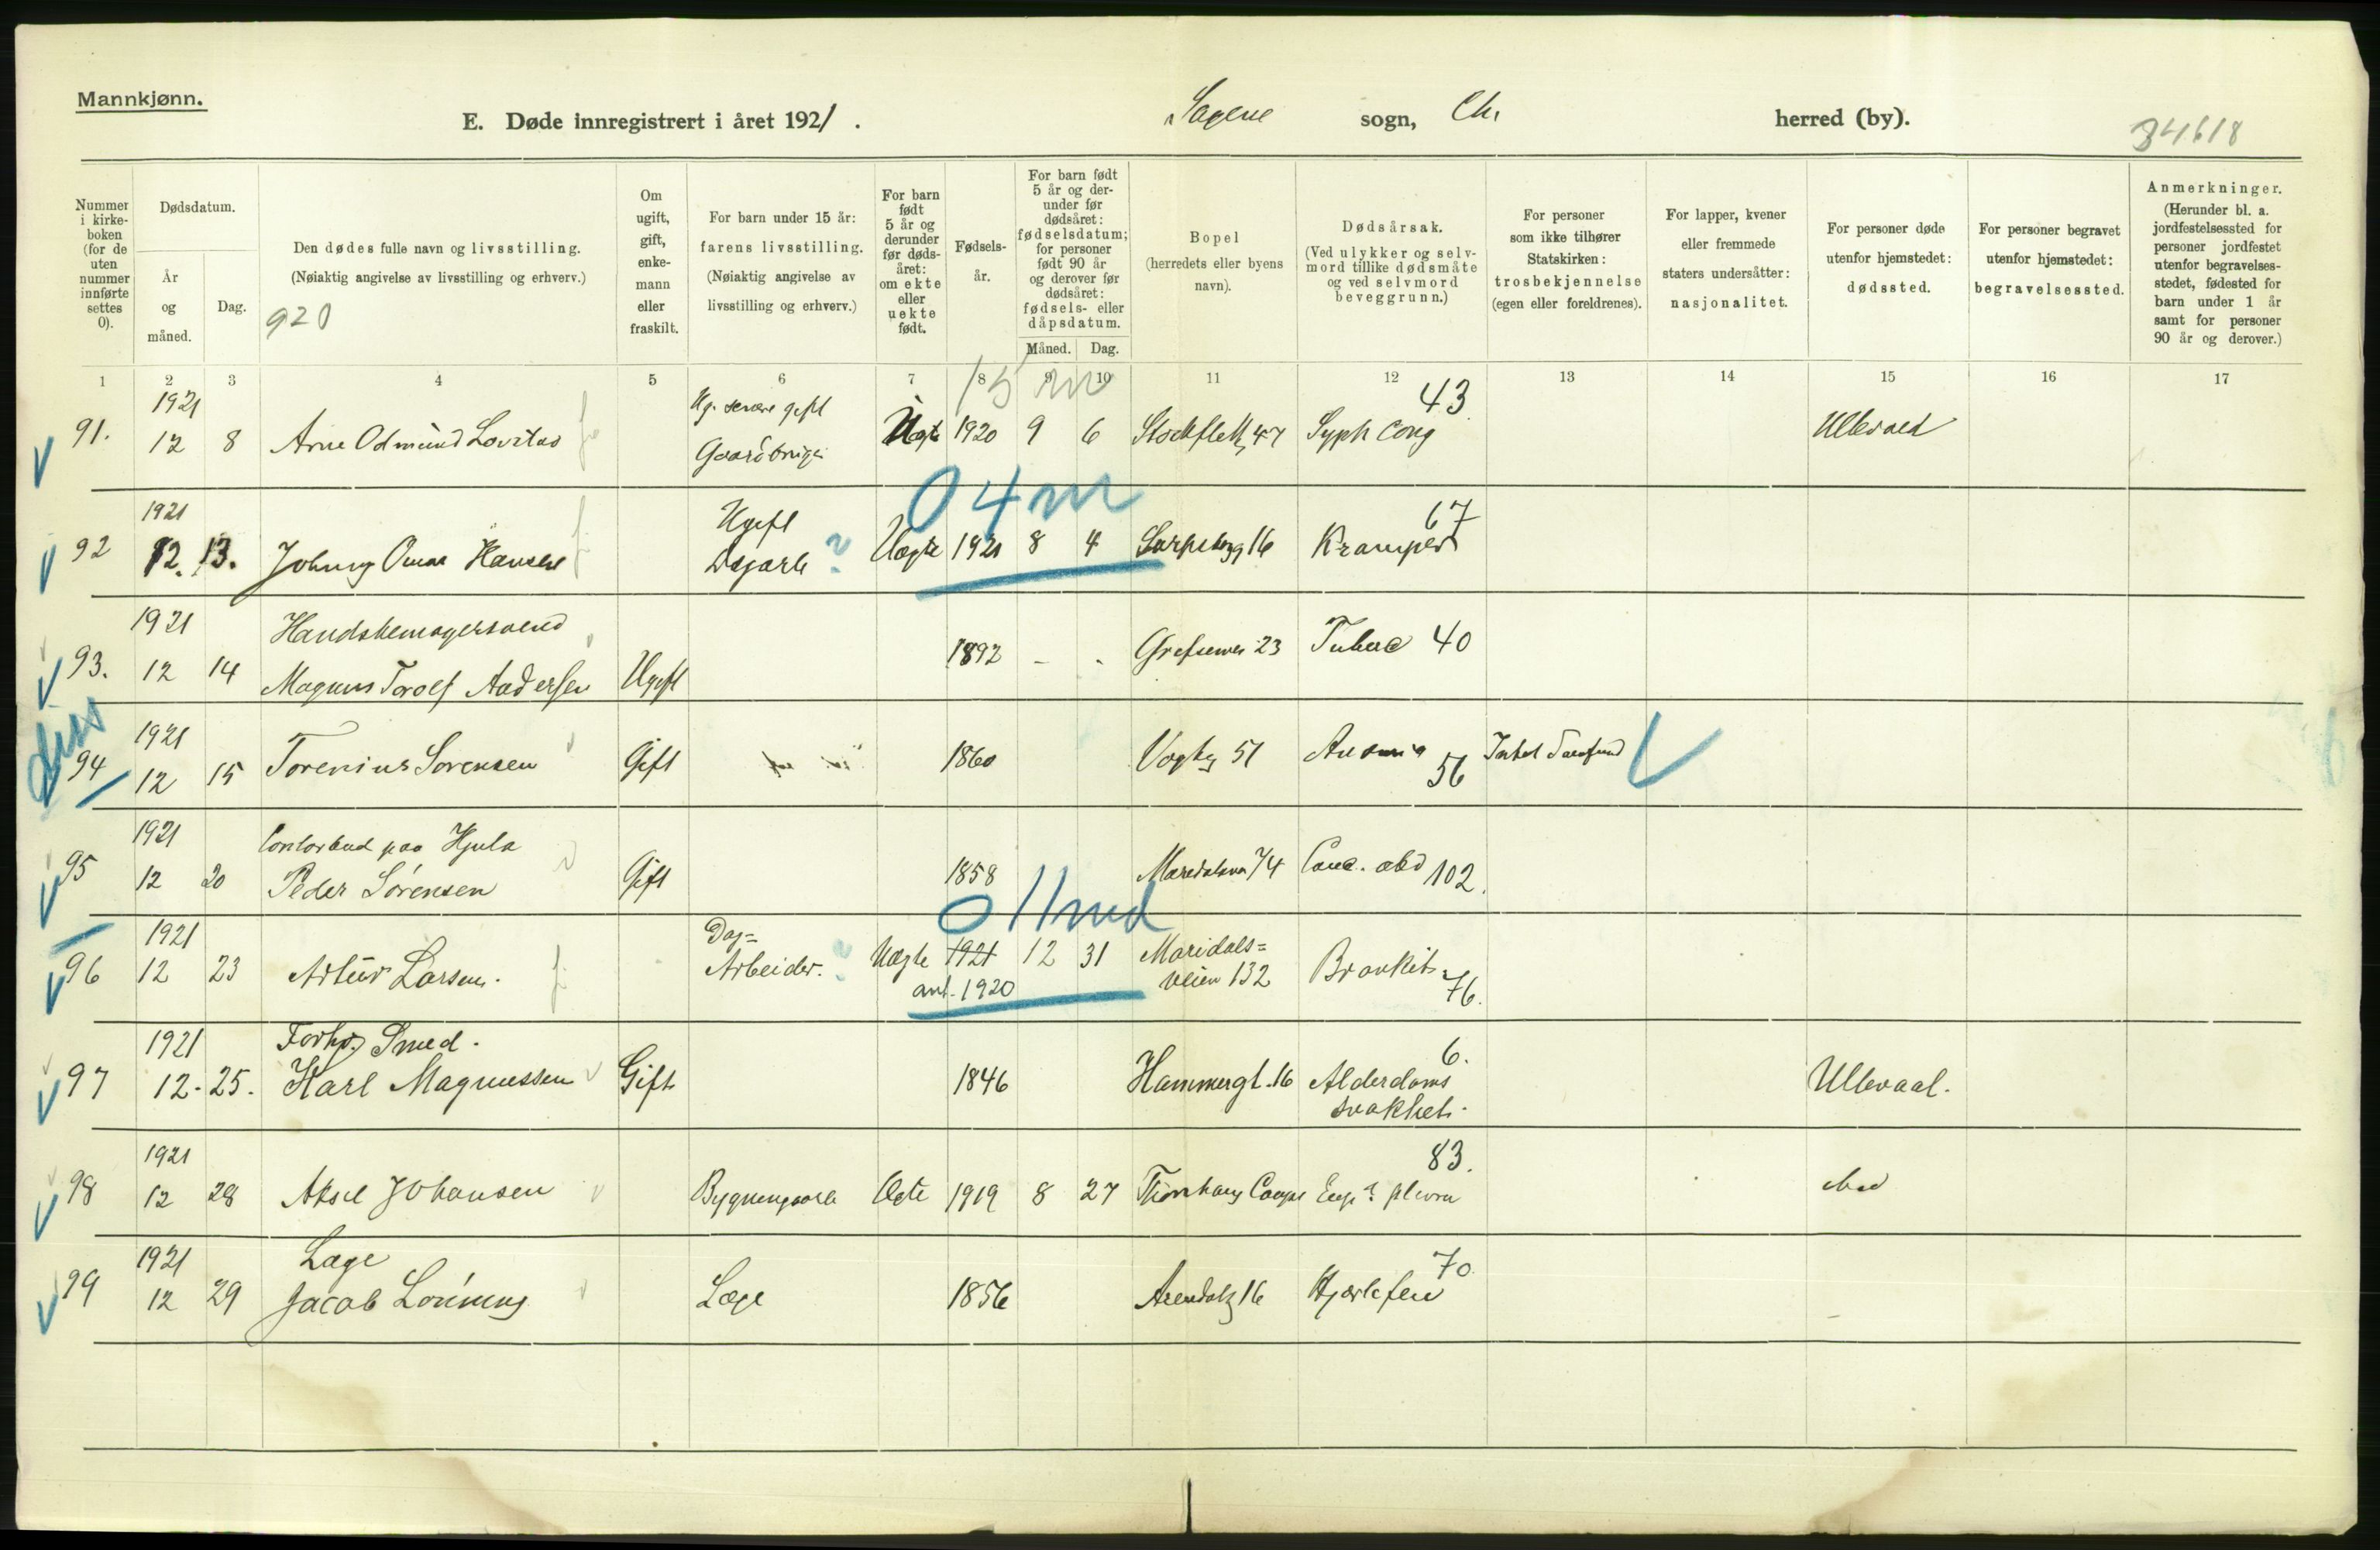 Mannkjønn.
E. Døde innregistrert i året 1921.
Sagene sogn, Chr herred (by).
34618
Nummer i kirke-boken (for de uten nummer innførte settes 0).
Dødsdatum.
År og måned.
Dag.
Den dødes fulle navn og livsstilling.
(Nøiaktig angivelse av livsstilling og erhverv.)
920
Om ugift, gift, enke-mann eller fraskilt.
For barn under 15 år: farens livsstilling.
(Nøiaktig angivelse av livsstilling og erhverv.)
For barn født 5 år og derunder før døds-året: om ekte eller uekte født.
Fødsels-år.
For barn født 5 år og der-under før dødsåret: fødselsdatum; for personer født 90 år og derover før dødsåret: fødsels- eller dåpsdatum.
Måned. Dag.
Bopel
(herredets eller byens navn).
Dødsårsak.
(Ved ulykker og selv-mord tillike dødsmåte og ved selvmord beveggrunn.)
For personer som ikke tilhører Statskirken: trosbekjennelse (egen eller foreldrenes).
For lapper, kvener eller fremmede staters undersåtter: nasjonalitet.
For personer døde utenfor hjemstedet: dødssted.
For personer begravet utenfor hjemstedet: begravelsessted.
Anmerkninger.
(Herunder bl. a. jordfestelsessted for personer jordfestet utenfor begravelses-stedet, fødested for barn under 1 år samt for personer 90 år og derover.)
1 2 3 4 5 6 7 8 9 10 11 12 13 14 15 16 17
15 m
1921 Ug. senere gift 43
91. 12 8 Arne Odmund Uegte 1920 9 6 47 Syph Cong Ullevaal
0 4 m
1921 Ugift 67
92 12. 13. Johnny Omar Hansen Uegte 1921 8 4 Sarpsborg 16 Kramper
1921 Handskemagersvend
93. 12 14 Magnus Torolf Andersen Ugift 1892 - - 23 Tuberc 40
diss
1921
94 12 15 Torenius Sorensen Gift 1860 51 56
1921 Contorbud paa Hjula
95 12 20 Peder Sörensen Gift 1858 74 Canc. abd 102.
0 11 md
1921 Dag=
96 12 23 Artur Larsen. Arbeider. Uegte 1921 12 31 Maridals=
ant. 1920 veien 132 Bronkit. 76.
1921 Forhv. Smed. 6.
97 12. 25. Karl Magnussen Gift 1846 Hammergt. 16 Alderdoms
svakhet. Ullevaal.
1921 83.
98 12 28 Aksel Johansen Egte 1919 8 27 pleura
1921 Læge 70.
99 12 29 Jacob Læge 1856 Arendalsg 16 Hjertefeil